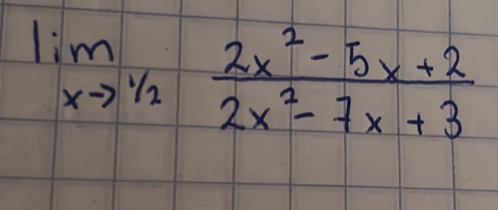 lim x→1/2 (2x² - 5x + 2)/(2x² - 7x + 3)